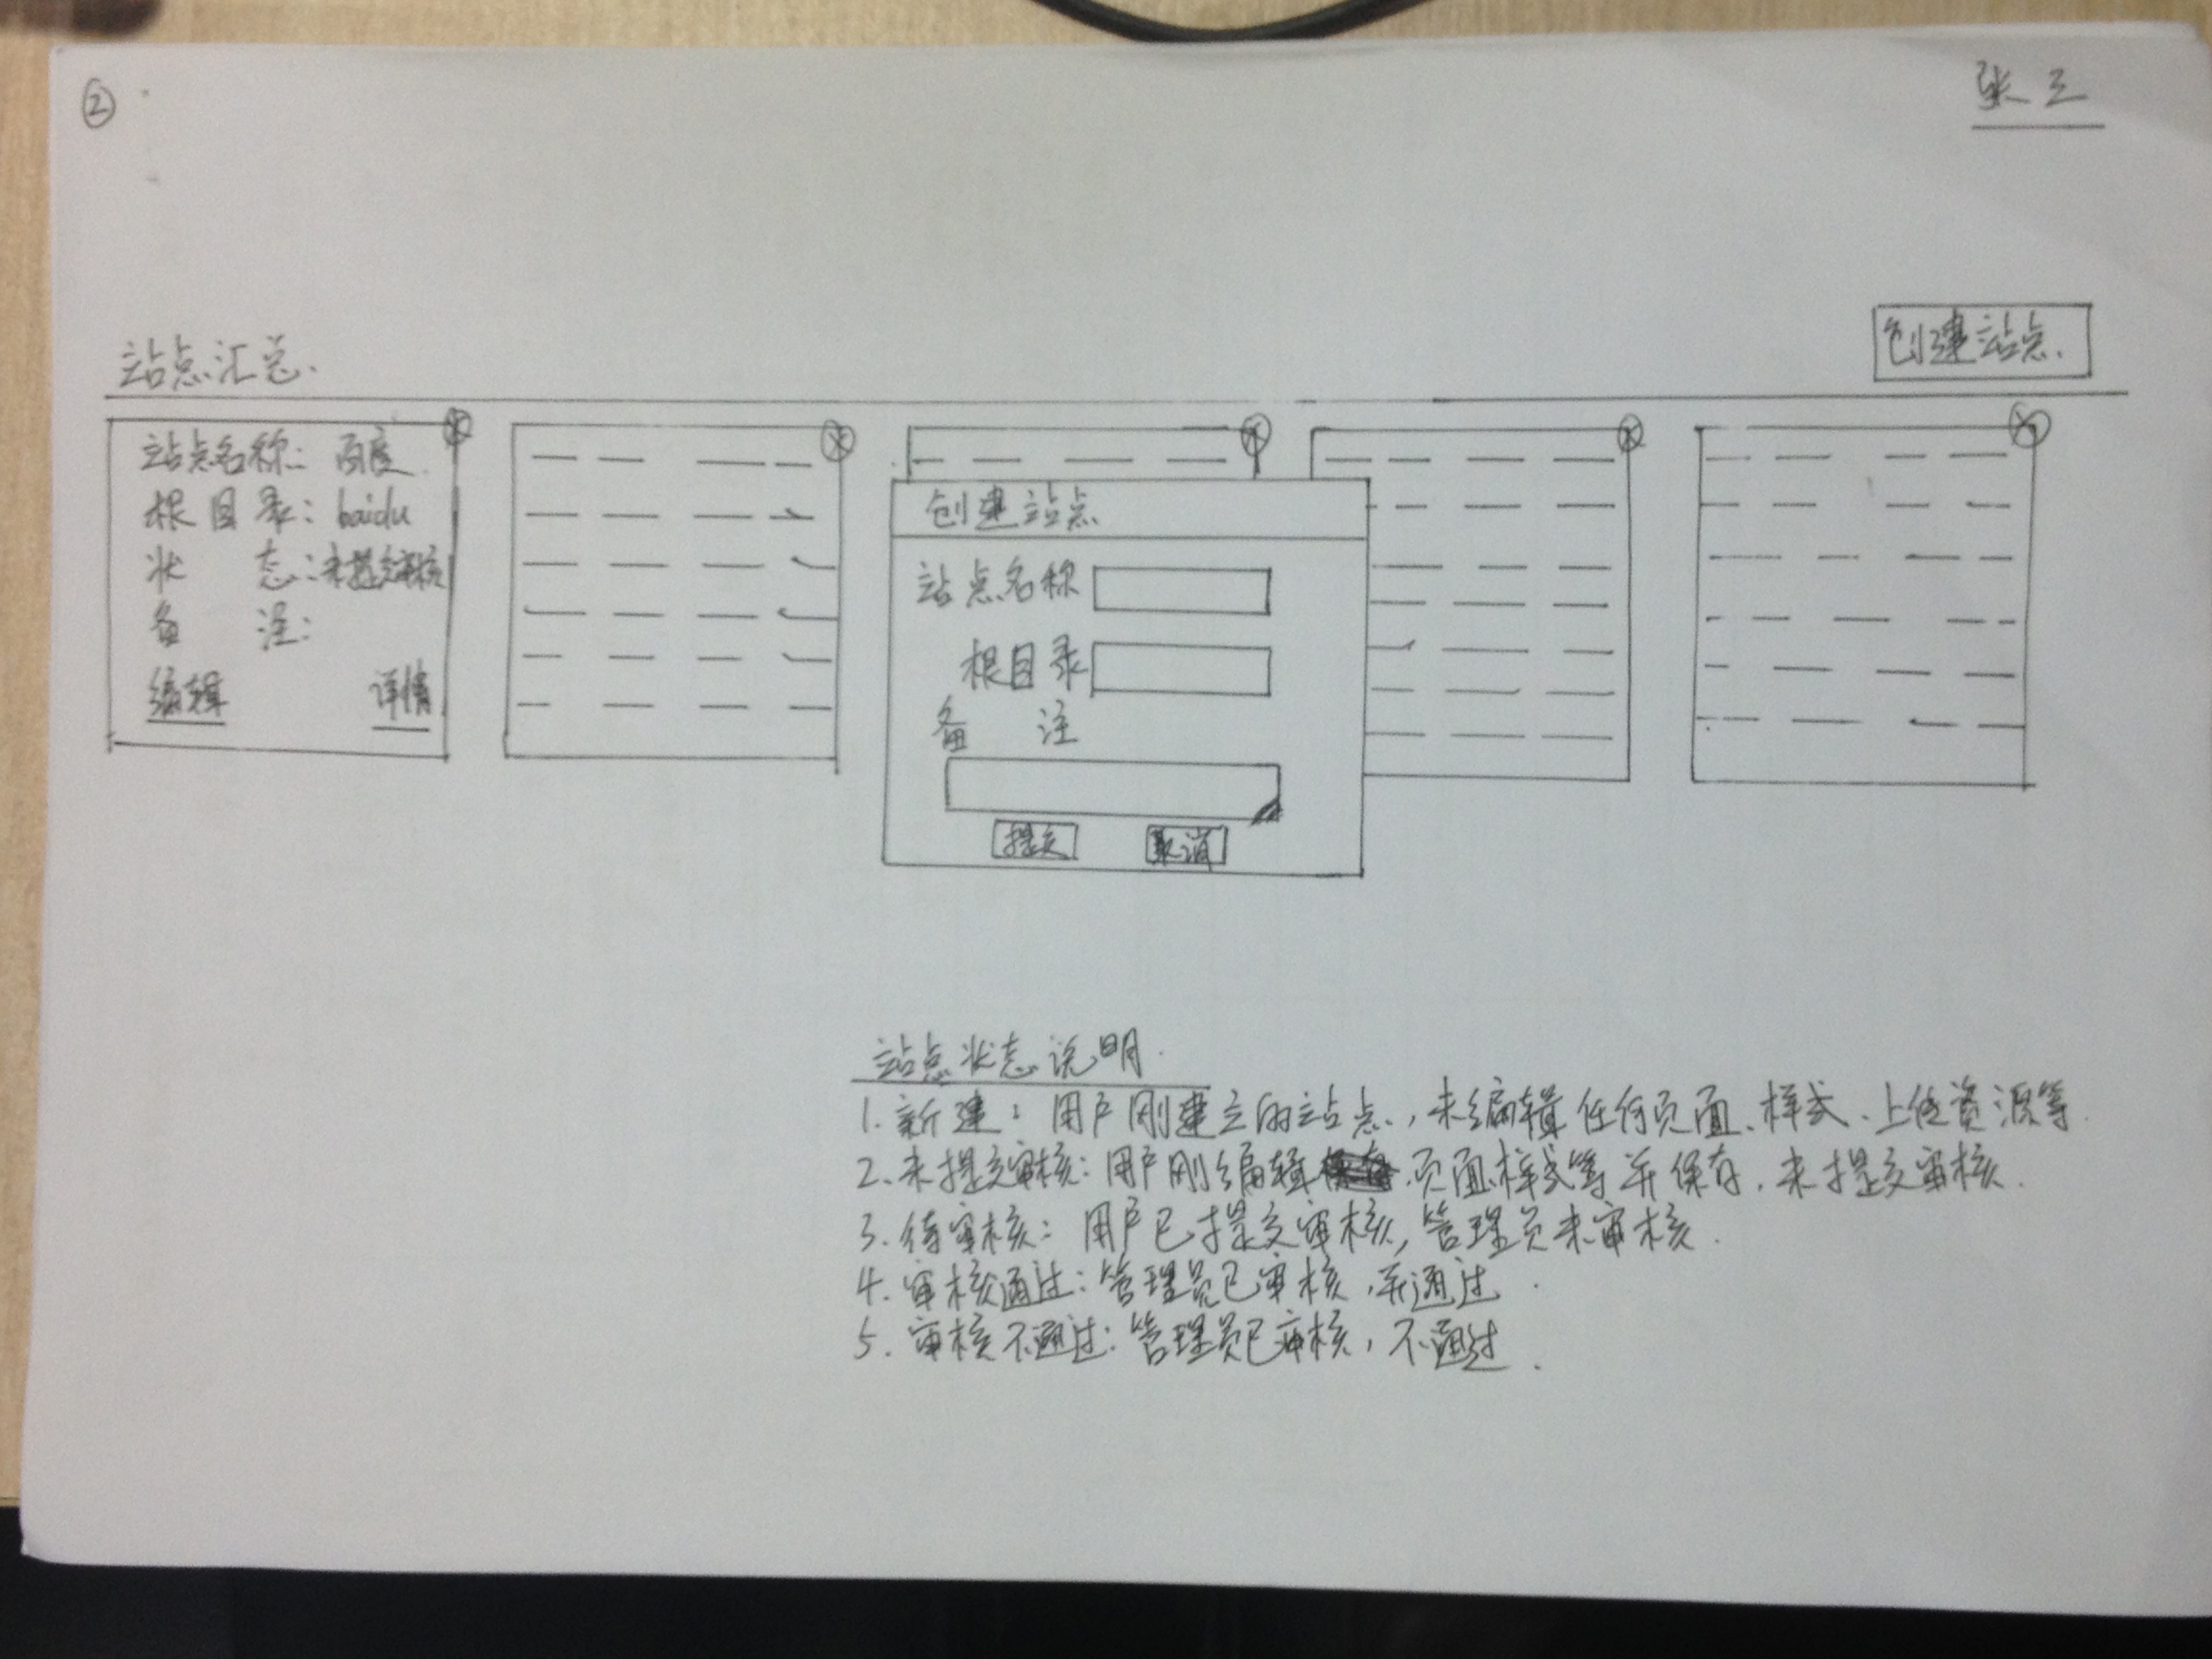 ②
张三
站点汇总.
创建站点.
站点名称: 百度
根目录: baidu
状 态: 未提交审核
备 注:
编辑 详情
创建站点
站点名称
根目录
备 注
提交 取消
站点状态说明.
1. 新建: 用户刚建立的站点, 未编辑任何页面、样式、上传资源等
2. 未提交审核: 用户刚编辑 页面样式等并保存, 未提交审核.
3. 待审核: 用户已提交审核, 管理员未审核.
4. 审核通过: 管理员已审核, 并通过.
5. 审核不通过: 管理员已审核, 不通过.